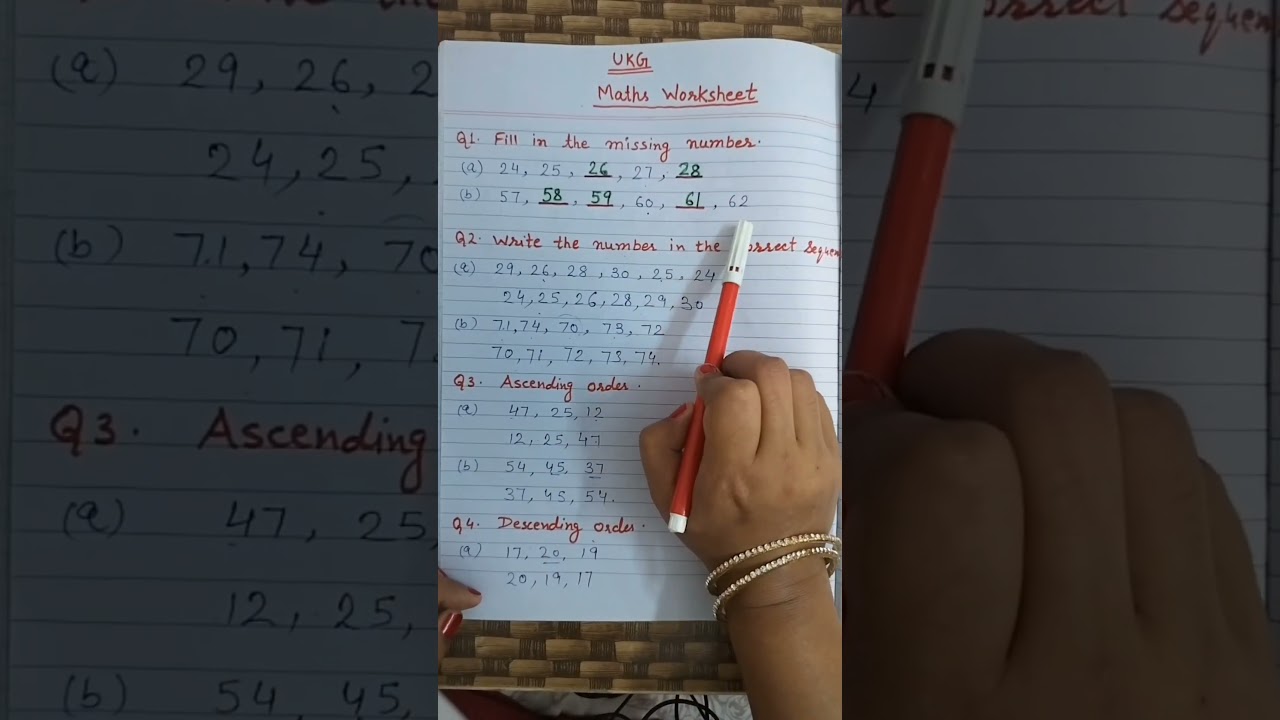 UKG
Maths Worksheet
Q1. Fill in the missing number.
(a) 24, 25, 26, 27, 28
(b) 57, 58, 59, 60, 61, 62
Q2. Write the number in the correct sequen
(a) 29, 26, 28, 30, 25, 24
24, 25, 26, 28, 29, 30
(b) 71, 74, 70, 73, 72
70, 71, 72, 73, 74.
Q3. Ascending order.
(a) 47, 25, 12
12, 25, 47
(b) 54, 45, 37
37, 45, 54.
Q4. Descending order.
(a) 17, 20, 19
20, 19, 17